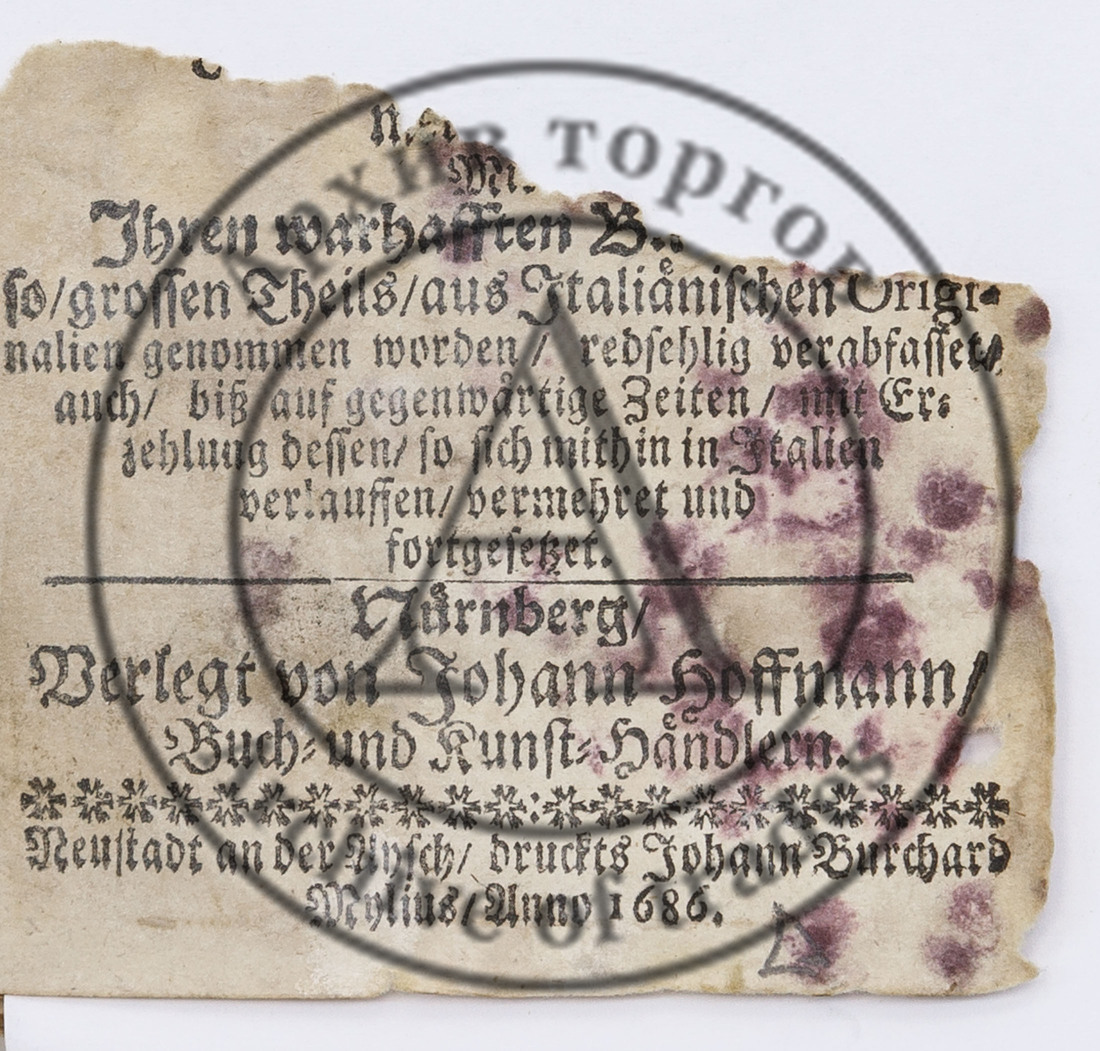 Ihren warhafften
so/grossen Theils/aus Italiånischen Origi-
nalien genommen worden / redsehlig verabfasset/
auch/ biß auf gegenwårtige Zeiten / mit Er-
zehlung dessen/ so sich mithin in Italien
verlauffen/ vermehret und
fortgesetzet.
Nůrnberg/
Verlegt von Johann Hoffmann/
Buch- und Kunst-Håndlern.
Neustadt an der Aysch/ druckts Johann Burchard
Mylius/ Anno 1686.
Архив торгов